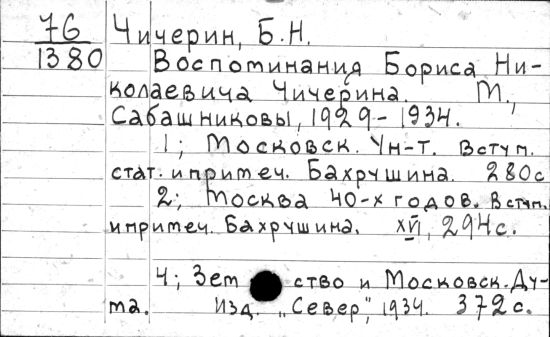 76 Чичерин, Б.Н.
1380 Воспоминания Бориса Ни-
колаевича Чичерина. М.,
Сабашниковы, 1929-1934.
1; Московск. Ун-т. Вступ.
стат. и примеч. Бахрушина. 280с
2; Москва 40-х годов. Вступ.
и примеч. Бахрушина. XVI, 294с.
4; Зем ство и Московск. Ду-
ма. Изд. „Север", 1934. 372с.